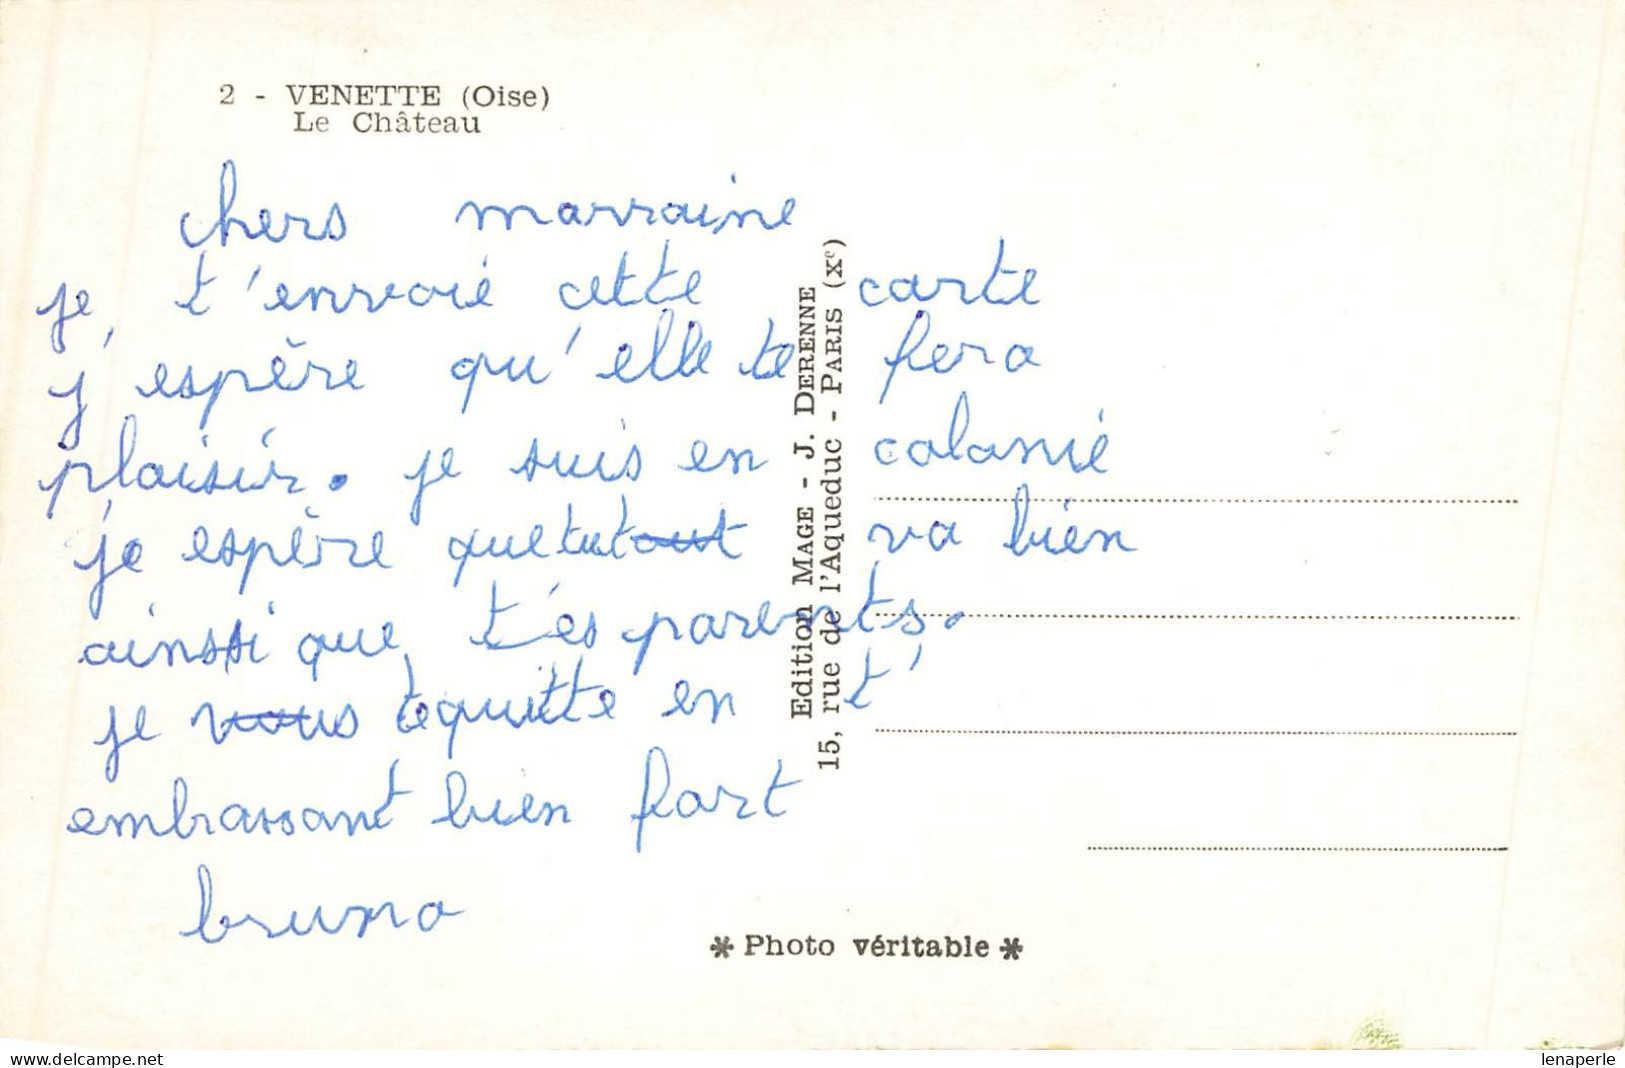 2 - VENETTE (Oise)
Le Château
chers marraine
je t'envoie cette carte
j'espère qu'elle te fera
plaisir. je suis en colonie
j'espère que tu tout va bien
ainssi que t'es parents.
je vous te quitte en t'
embrassant bien fort
bruno
Edition MAGE - J. DERENNE
15, rue de l'Aqueduc - PARIS (Xe)
* Photo véritable *
lenaperle
www.delcampe.net